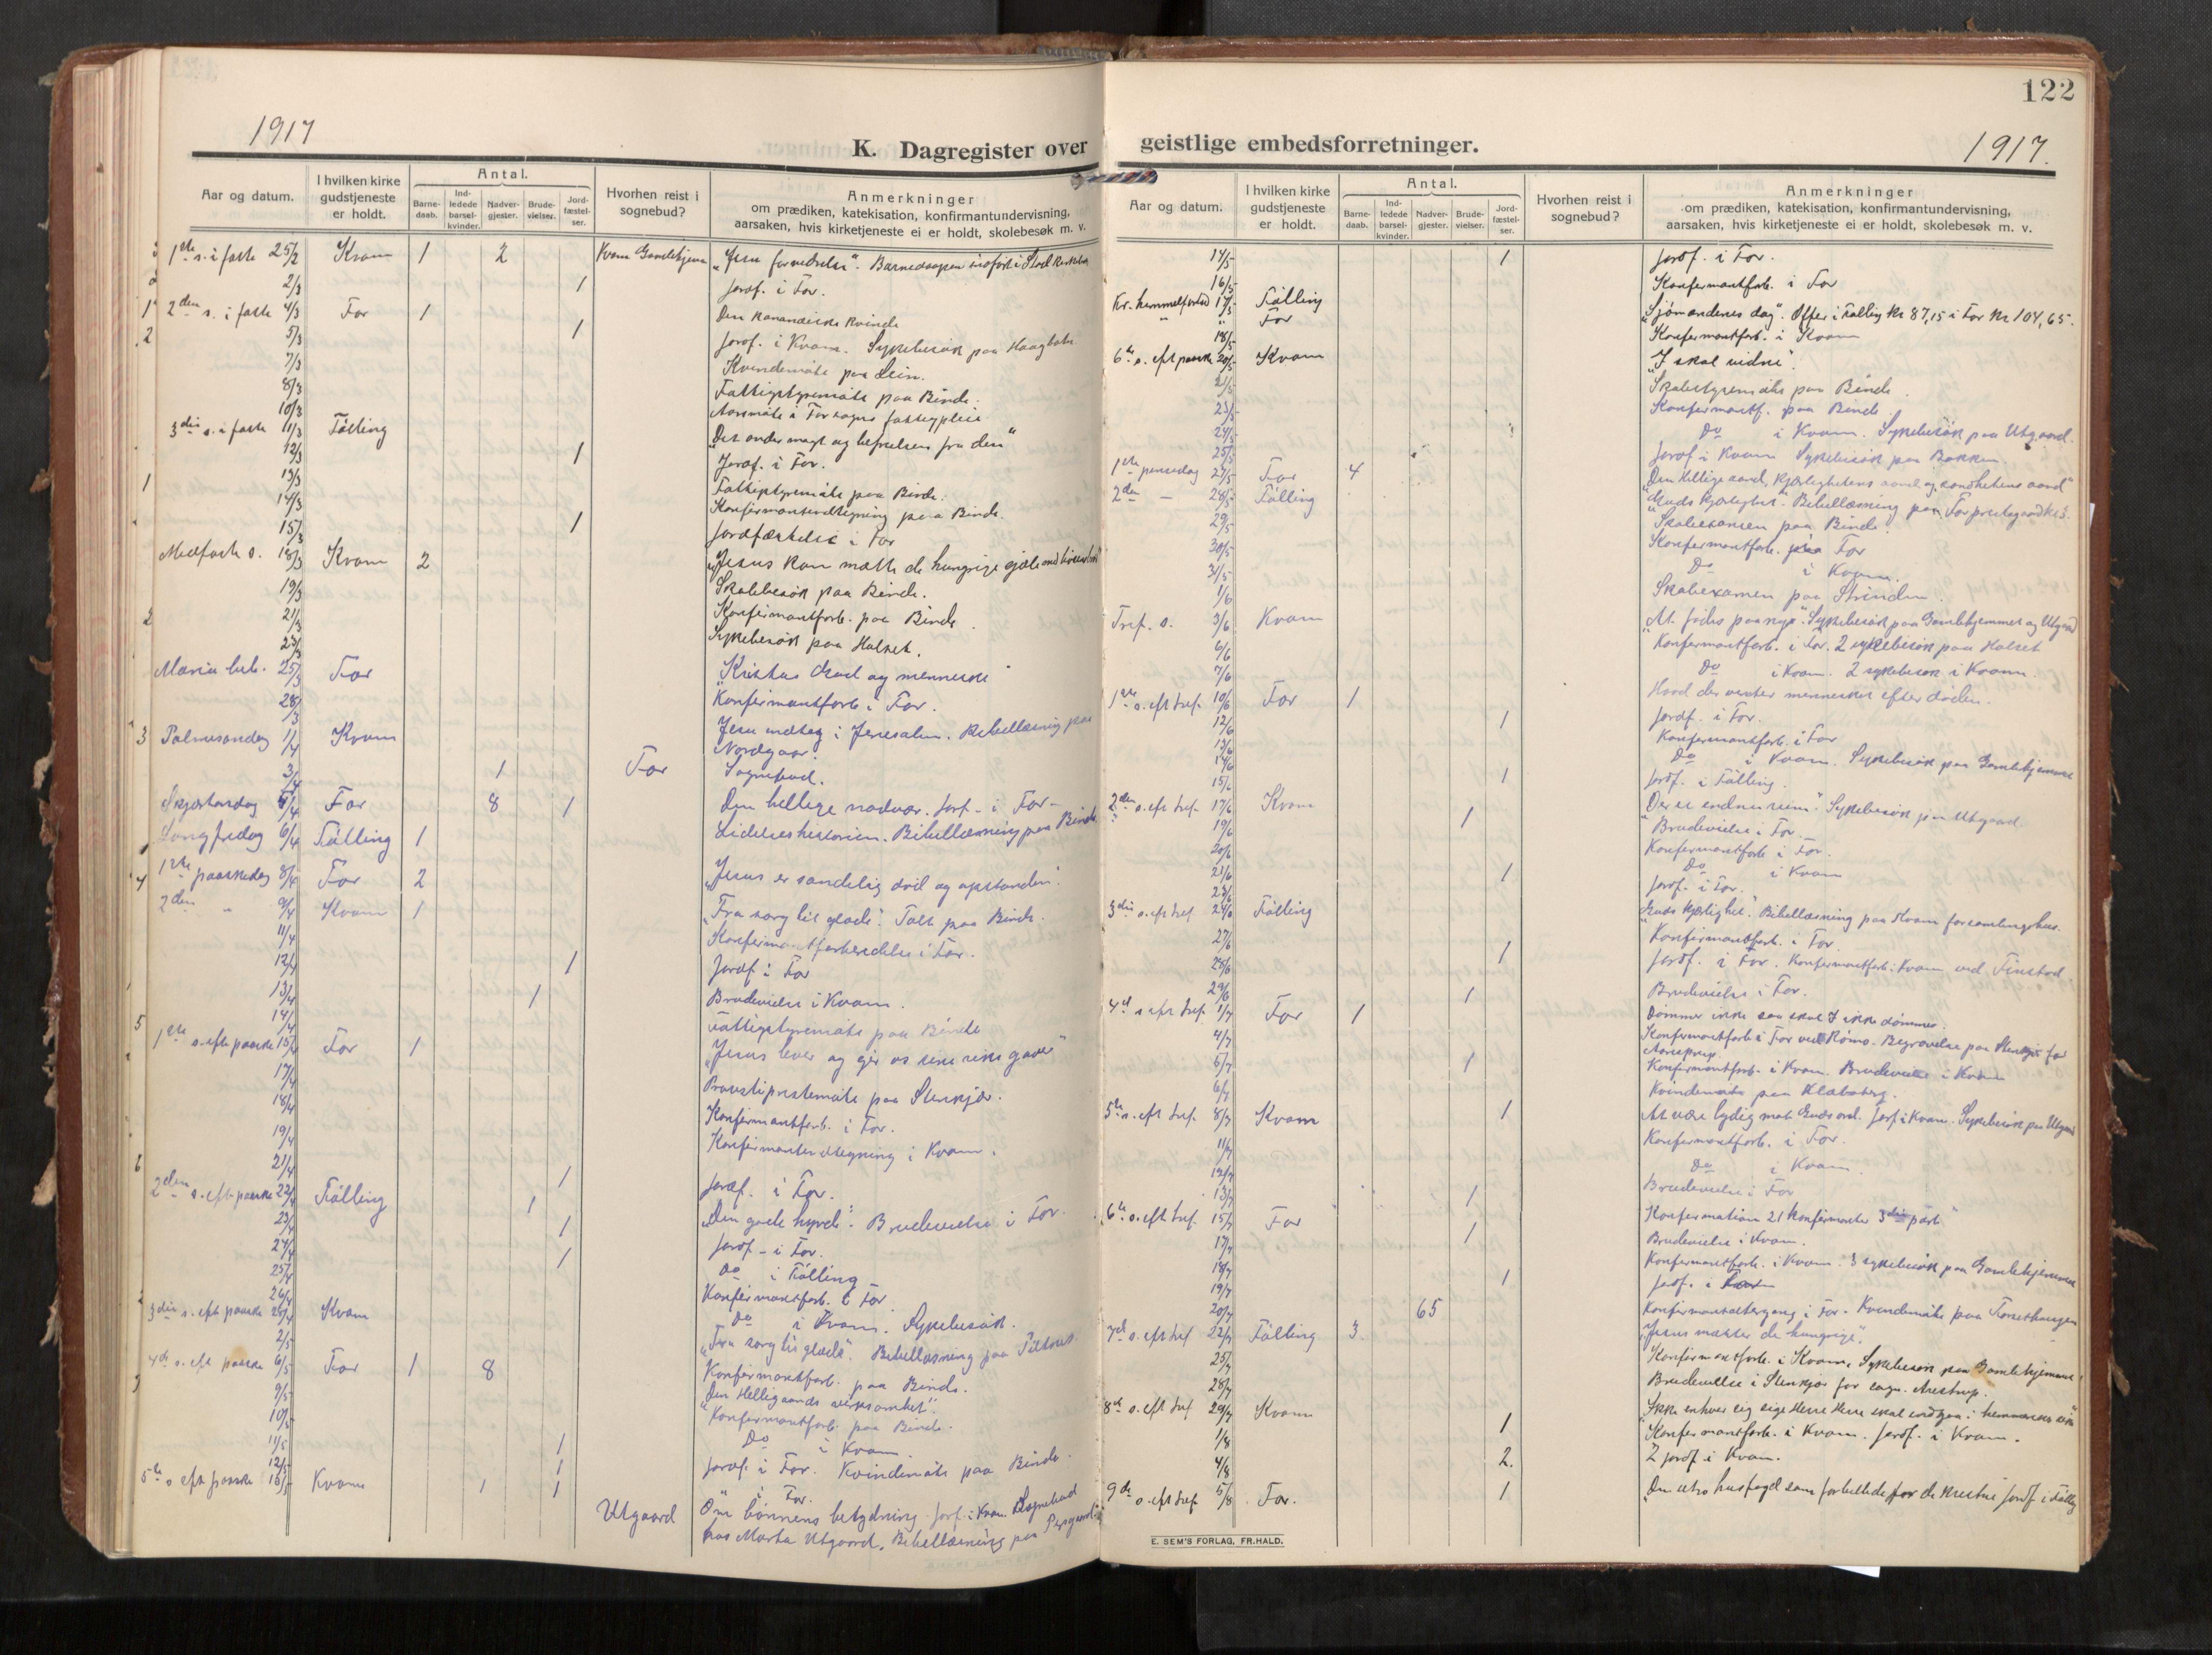 1917
K. Dagregister over
Aar og datum.
I hvilken kirke gudstjeneste er holdt.
Antal.
Barne-daab.
Ind-ledede barsel-kvinder.
Nadver-gjester.
Brude-vielser.
Jord-fæstel-ser.
Hvorhen reist i sognebud?
Anmerkninger
om prædiken, katekisation, konfirmantundervisning,
aarsaken, hvis kirketjeneste ei er holdt, skolebesøk m. v.
1ste s. i faste 25/2 Kvam 1 2 Kvam Gamlehjem "Jesu fornedrelse". Barnedaapen indført i Stod
2/3 1 Jordf. i For.
2den s. i faste 4/3 For 1 Den kananæiske kvinde
5/3 1 Jordf. i Kvam. Sykebesøk paa
7/3 Kvindemøte paa Lein.
8/3 Fattigstyremøte paa Binde.
10/3 Aarsmøte i For sogns fattigpleie
3die s. i faste 11/3 Følling "Det ondes magt og befrielsen fra den"
12/3 1 Jordf. i For.
13/3 Fattigstyremøte paa Binde.
14/3 Konfirmantindtegning paa Binde.
15/3 1 Jordfæstelse i For
Midfaste s. 18/3 Kvam 2 "Jesus kan mætte de hungrige sjæle med
19/3 Skolebesøk paa Binde.
21/3 Konfirmantforb. paa Binde.
23/3 Sykebesøk paa Halset.
Mariæ beb. 25/3 For "Kristus Gud og menneske"
28/3 Konfirmantforb. i For.
Palmesøndag 1/4 Kvam Jesu indtog i Jerusalem. Bibellæsning paa
Nordgaar.
3/4 1 For Sognebud.
Skjærtorsdag 5/4 For 8 1 Den hellige nadver. Jorf. i For.
Langfredag 6/4 Følling 1 Lidelseshistorien. Bibellæsning paa Binde
1ste paaskedag 8/4 For 2 "Jesus er sandelig død og opstanden".
2den " 9/4 Kvam 1 "Fra sorg til glæde". Tale paa Binde.
11/4 Konfirmantforberedelse i For.
12/4 1 Jordf. i For
13/4 1 Brudevielse i Kvam.
14/4 Fattigstyremøte paa Binde
1ste s. eft. paaske 15/4 For 1 "Jesus lever og gir os sine rike gaver"
17/4 Provstiprestemøte paa Stenkjær.
18/4 Konfirmantforb. i For.
19/4 Konfirmantindtegning i Kvam.
21/4 1 Jordf. i For.
2den s. eft. paaske 22/4 Følling 1 "Den gode hyrde". Brudevielse i For.
23/4 1 Jordf. i For.
24/4 1 Do i Følling
25/4 Konfirmantforb. i For
26/4 Do i Kvam. Sykebesøk.
3die s. eft. paaske 29/4 Kvam "Fra sorg til glæde". Bibellæsning paa
2/5 Konfirmantforb. paa Binde.
4de s. eft. paaske 6/5 For 1 8 "Den Helligaands virksomhet".
9/5 Konfirmantforb. paa Binde.
10/5 Do i Kvam.
11/5 1 Jordf. i For. Kvindemøte paa Binde.
12/5 1 " i For.
5te s. eft. paaske 13/5 Kvam 1 1 Utgaard Om bønnens betydning. Jorf. i Kvam. Sognebud
hos Marta Utgaard. Bibellæsning paa
122
geistlige embedsforretninger.
1917.
Aar og datum.
I hvilken kirke gudstjeneste er holdt.
Antal.
Barne-daab.
Ind-ledede barsel-kvinder.
Nadver-gjester.
Brude-vielser.
Jord-fæstel-ser.
Hvorhen reist i sognebud?
Anmerkninger
om prædiken, katekisation, konfirmantundervisning,
aarsaken, hvis kirketjeneste ei er holdt, skolebesøk m. v.
14/5 1 Jordf. i For.
16/5 Konfirmantforb. i For
Kr. himmelfartsd. 17/5 Følling "Sjømændenes dag". Offer i Følling Kr 87,15 i For Kr 104,65.
" " For
18/5 Konfirmantforb. i Kvam
6te s. eft. paaske 20/5 Kvam "I skal vidne".
21/5 Skolestyremøte paa Binde.
23/5 Konfirmantf. paa Binde.
24/5 Do i Kvam. Sykebesøk paa Utgaard.
25/5 Jordf. i Kvam Sykebesøk paa Bakken.
1ste pinsedag 27/5 For 4 "Den Hellige aand, kjærlighetens aand og sandhetens aand"
2den — 28/5 Følling "Guds kjærlighet". Bibellæsning paa For prestegaard
29/5 Skoleeksamen paa Binde.
30/5 Konfirmantforb. paa For
31/5 Do i Kvam.
1/6 Skoleexamen paa Strinden.
Tref. s. 3/6 Kvam "At fødes paa nye". Sykebesøk paa Gamlehjemmet og Utgaard
6/6 Konfirmantforb. i For. 2 sykebesøk paa Halset
7/6 Do i Kvam. 2 sykebesøk i Kvam.
1ste s. eft. tref. 10/6 For 1 Hvad der venter mennesket efter døden.
12/6 1 Jordf. i For.
13/6 Konfirmantforb. i For
14/6 Do i Kvam. Sykebesøk paa Gamlehjemmet
15/6 1 Jordf. i Følling.
2den s. eft. tref. 17/6 Kvam "Der er endnu rum". Sykebesøk paa Utgaard.
19/6 1 Brudevielse i For.
20/6 Konfirmantforb. i For.
21/6 Do i Kvam
23/6 1 Jordf. i For.
3die s. eft. tref. 24/6 Følling "Guds kjærlighet". Bibellæsning paa Kvam forsamlingshus.
27/6 Konfirmantforb. i For.
28/6 1 Jordf. i For. Konfirmantforb. i Kvam ved Finstad
29/6 1 Brudevielse i For.
4de s. eft. tref. 1/7 For 1 Dømmer ikke saa skal I ikke dømmes.
4/7 Konfirmantforb. i For ved Rømo. Begravelse paa Stenkjær for
Aarestrup.
5/7 1 Konfirmantforb. i Kvam. Brudevielse i Kvam
6/7 Kvindemøte paa Klæbaberg.
5te s. eft. tref. 8/7 Kvam 1 At være lydig mot Guds ord. Jorf. i Kvam. Sykebesøk paa Utgaard
11/7 Konfirmantforb. i For.
12/7 Do i Kvam.
13/7 1 Brudevielse i For
6te s. eft. tref. 15/7 For Konfirmation 21 konfirmanter
17/7 1 Brudevielse i Kvam.
18/7 Konfirmantforb. i Kvam. 3 sykebesøk paa Gamlehjemmet
19/7 1 Jordf. i For
20/7 65 Konfirmantaltergang i For. Kvindemøte paa
7de s. eft. tref. 22/7 Følling 3 "Jesus mætter de hungrige".
25/7 Konfirmantforb. i Kvam. Sykebesøk paa Gamlehjemmet
28/7 Brudevielse i Stenkjær for sogn. Arestrup.
8de s. eft. tref. 29/7 Kvam "Ikke enhver sig sige Herre Herre skal indgaa i himmeriges rike"
1/8 1 Konfirmantforb. i Kvam. Jordf. i Kvam.
4/8 2. 2 jordf. i Kvam.
9de s. eft. tref. 5/8 For. 1 "Den utro husfoged som forbillede for de kristne Jordf. i Følling
E. SEM'S FORLAG, FR.HALD.